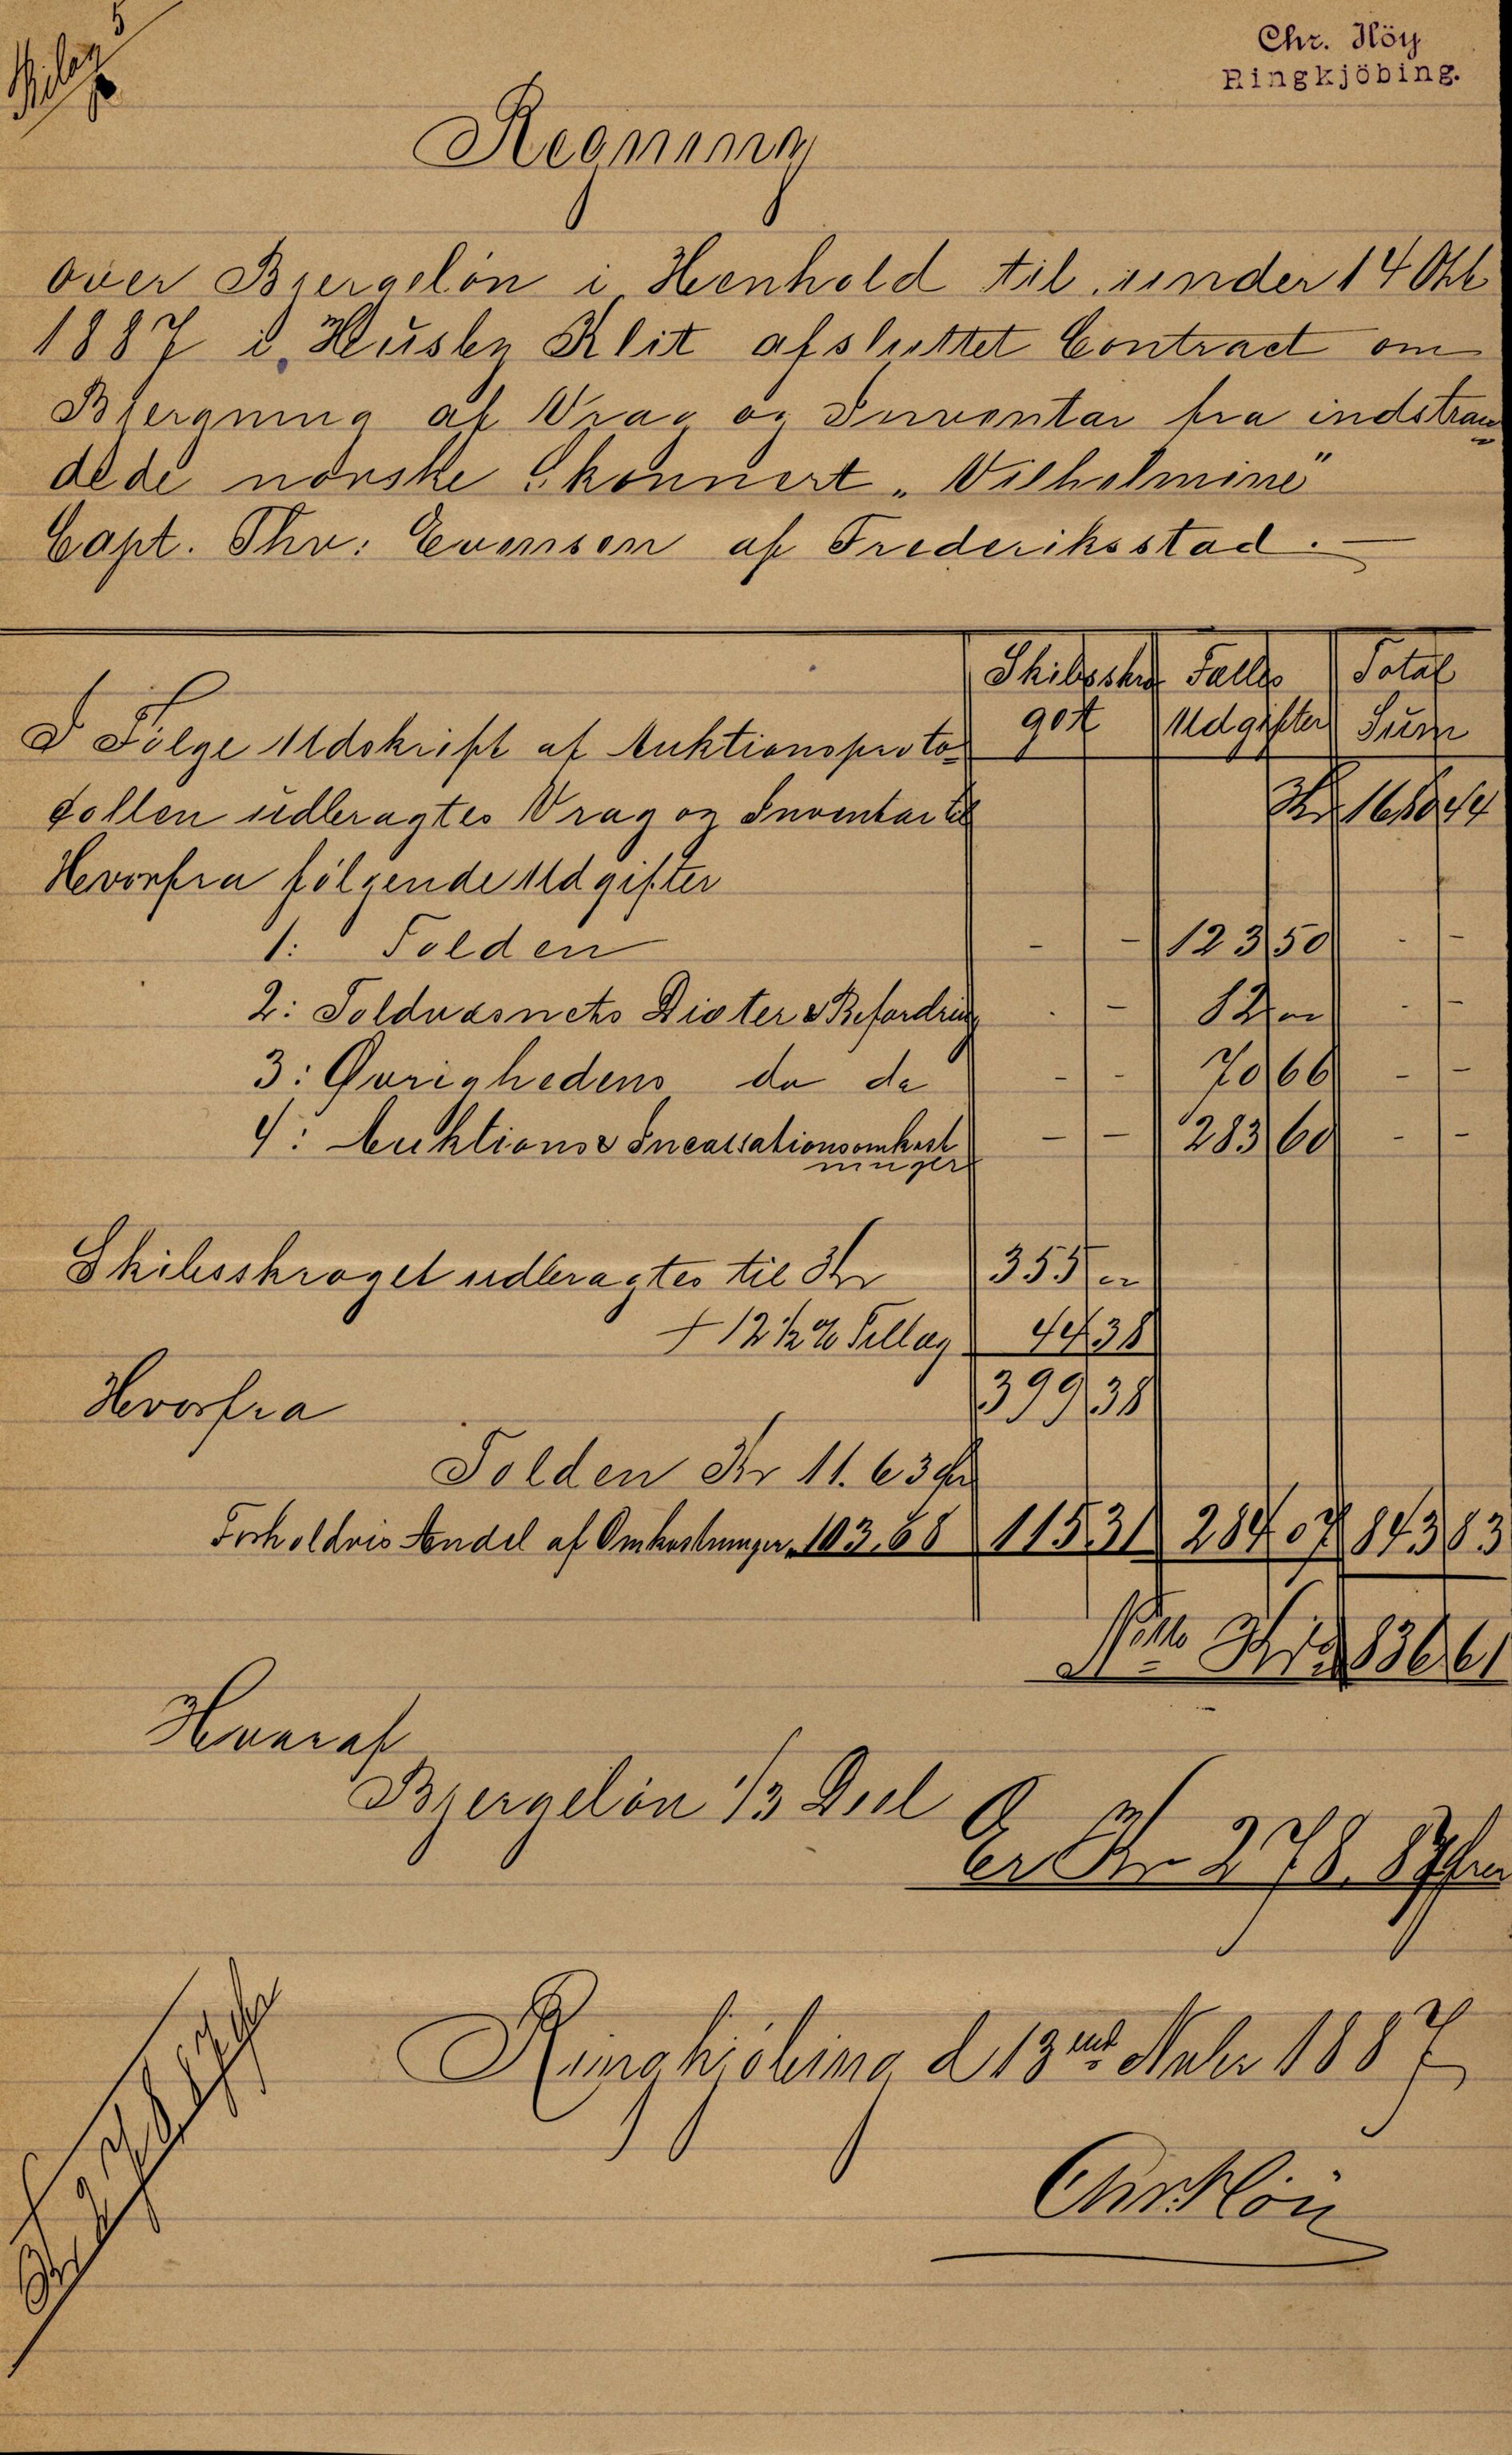 Bilag 5
Chr. Höy
Ringkjöbing.
Regning
over Bjergelön i Henhold til under 14 Oktb
1887 i Husby Klit afsluttet Contract om
Bjergning af Vrag og Inventar fra indstran
dede norske Skonnert „Vilhelmine"
Capt. Thv: Evensen af Frederiksstad. —
Skibsskro Fælles Total
get Udgifter Sum
I Følge Udskrift af Auktionsproto
collen udbragtes Vrag og Inventar til Kr 1680 44
Hvorfra følgende Udgifter
1: Tolden - - 123 50 - -
2: Toldvæsnets Dieter & Befordring - - 12 - -
3: Øvrighedens do do - - 70 66 - -
4: Auktions & Incassationsomkost - - 283 60 - -
ninger
Skibsskroget udbragtes til Kr 355
+ 12 1/2 % Tillæg 44 38
Hvorfra 399 38
Tolden Kr 11.63 Ør
Forholdvis Andel af Omkostninger „ 103.68 115 31 284 07 843 83
Netto Kr 836 61
Hvoraf
Bjergelön 1/3 Deel
Er Kr 278.87 Ører
Ringkjöbing d 13 Nvbr 1887
Chr. Höy
Kr 278.87 Ør